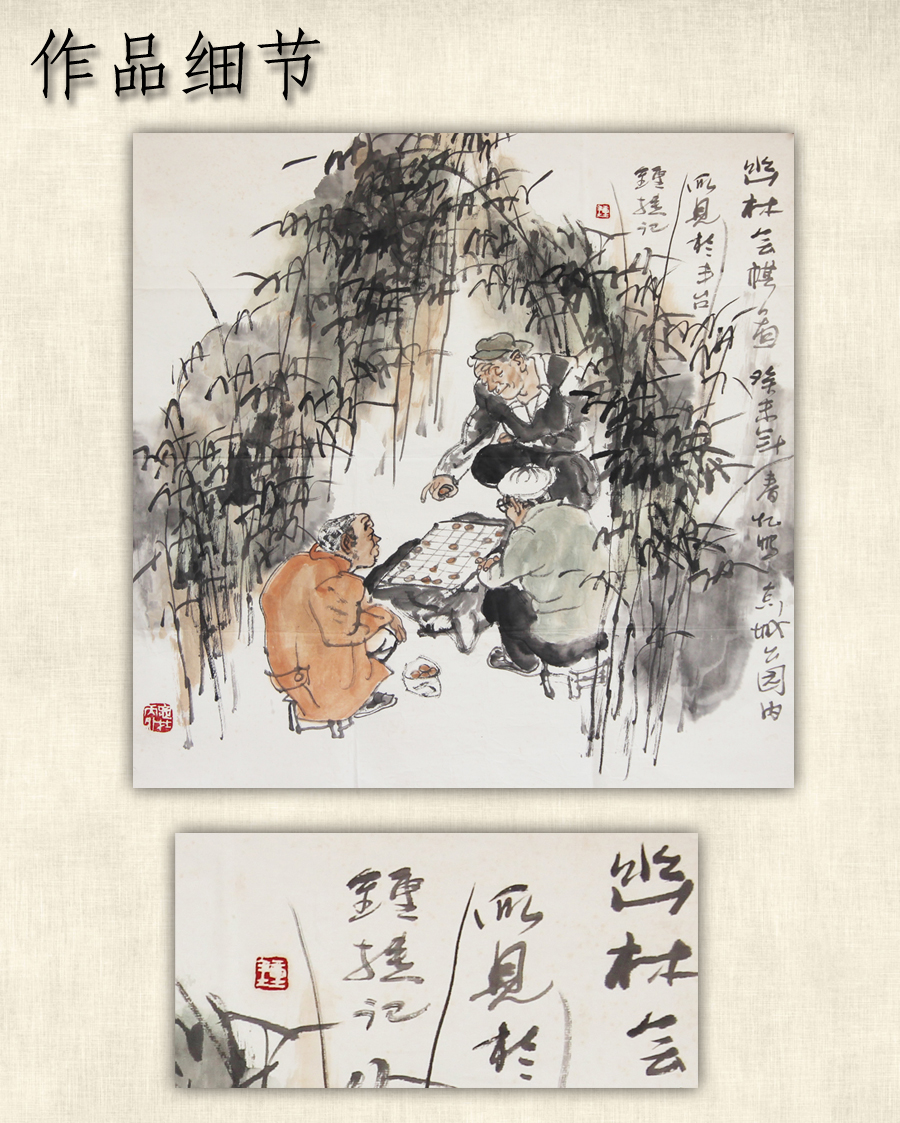 作品细节
幽林会棋图 癸未年春忆昨京城公园内
所见于丰台
钟捷记
鍾
所见於
幽林会